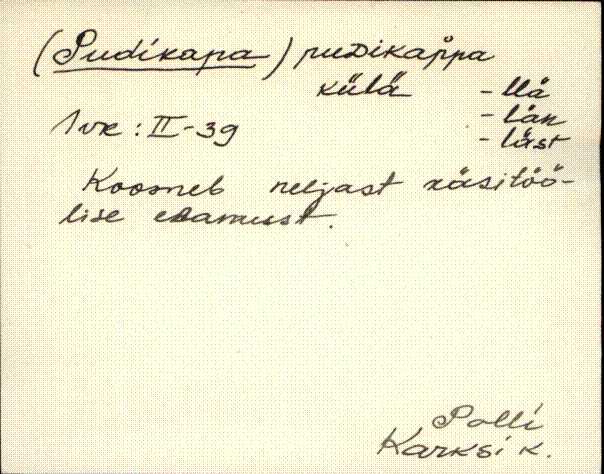 (Pudikapa) puDikap̀pa
külä - llä
- län
1 vk : II-39 - läst
Koosneb neljast käsitöö-
lise elamust.
Polli
Karksi k.